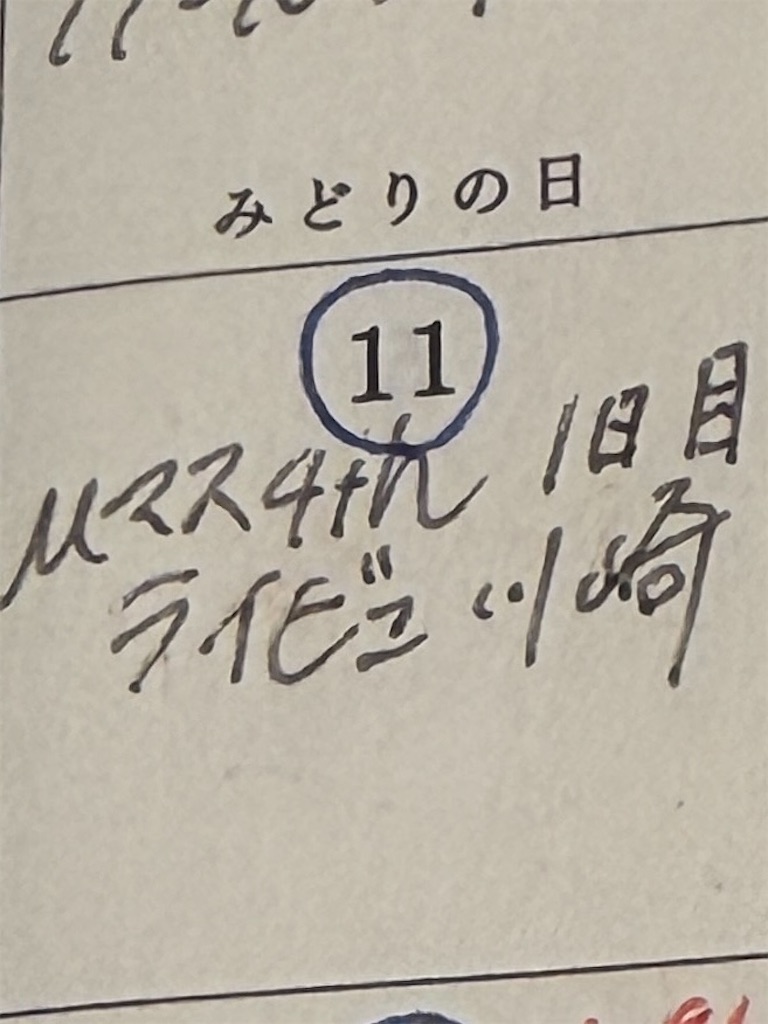 みどりの日
11
Mマス4th 1日目
ライビュ 川崎